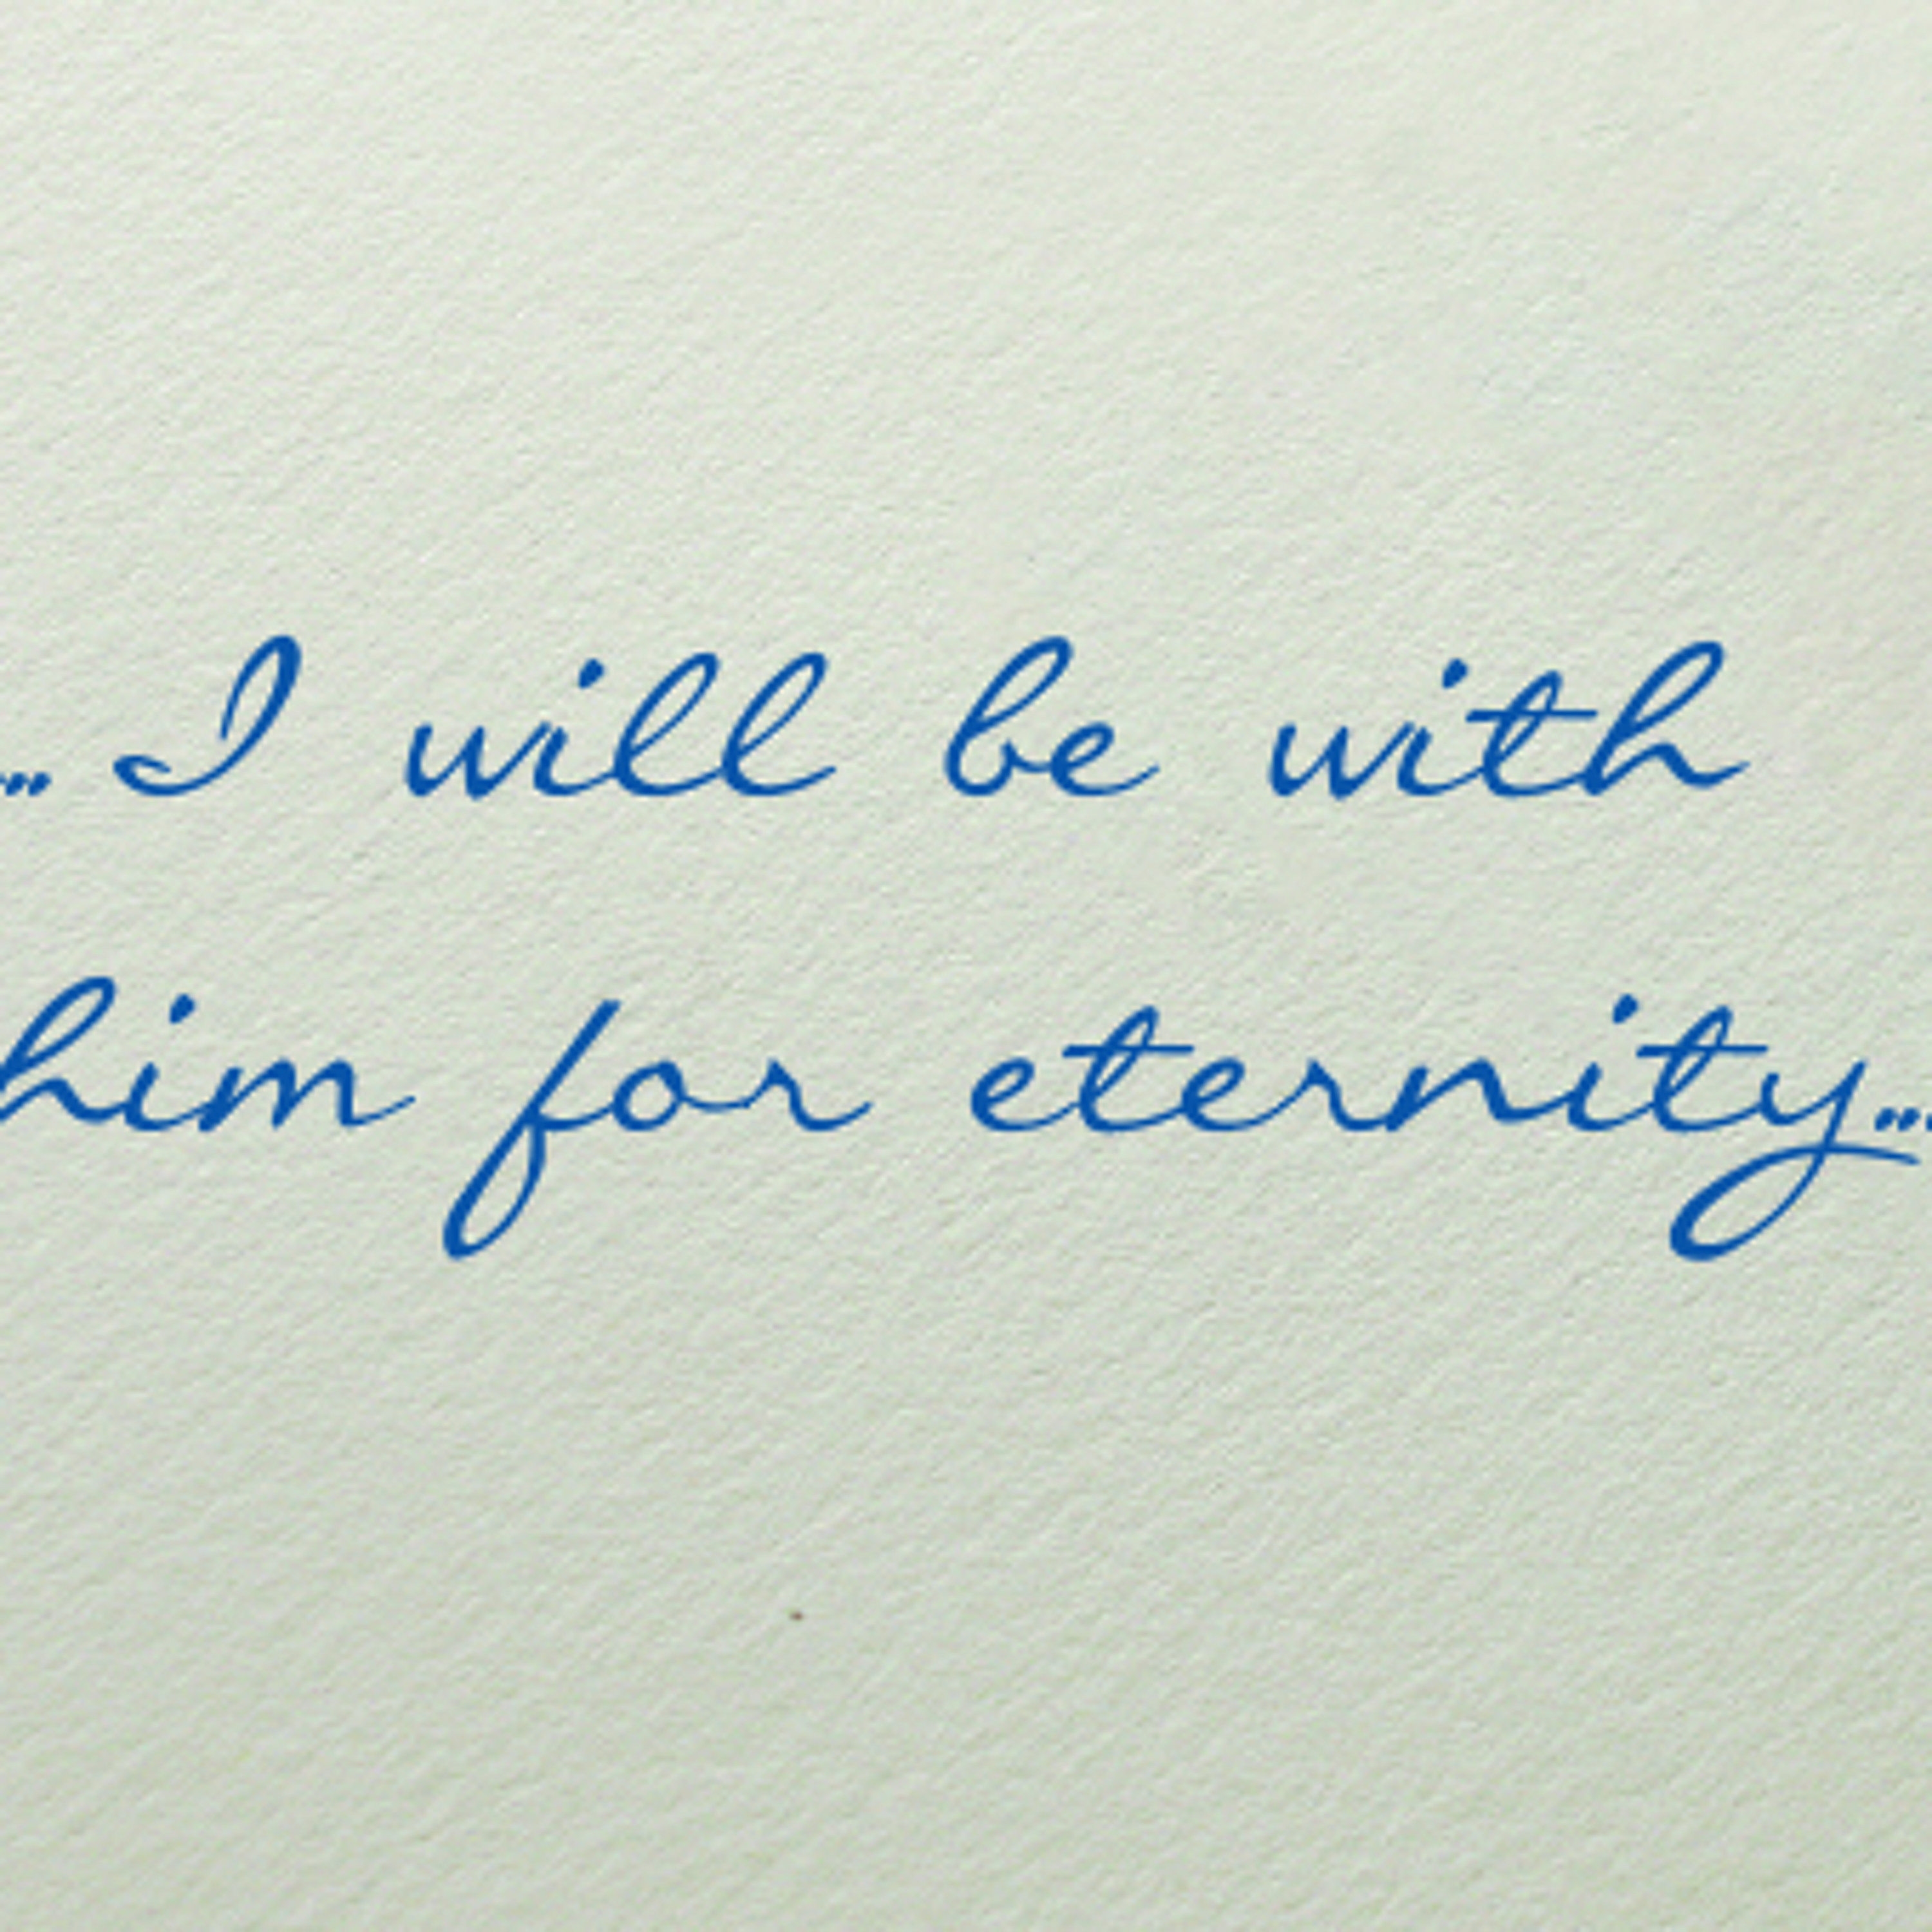 ...I will be with
him for eternity...